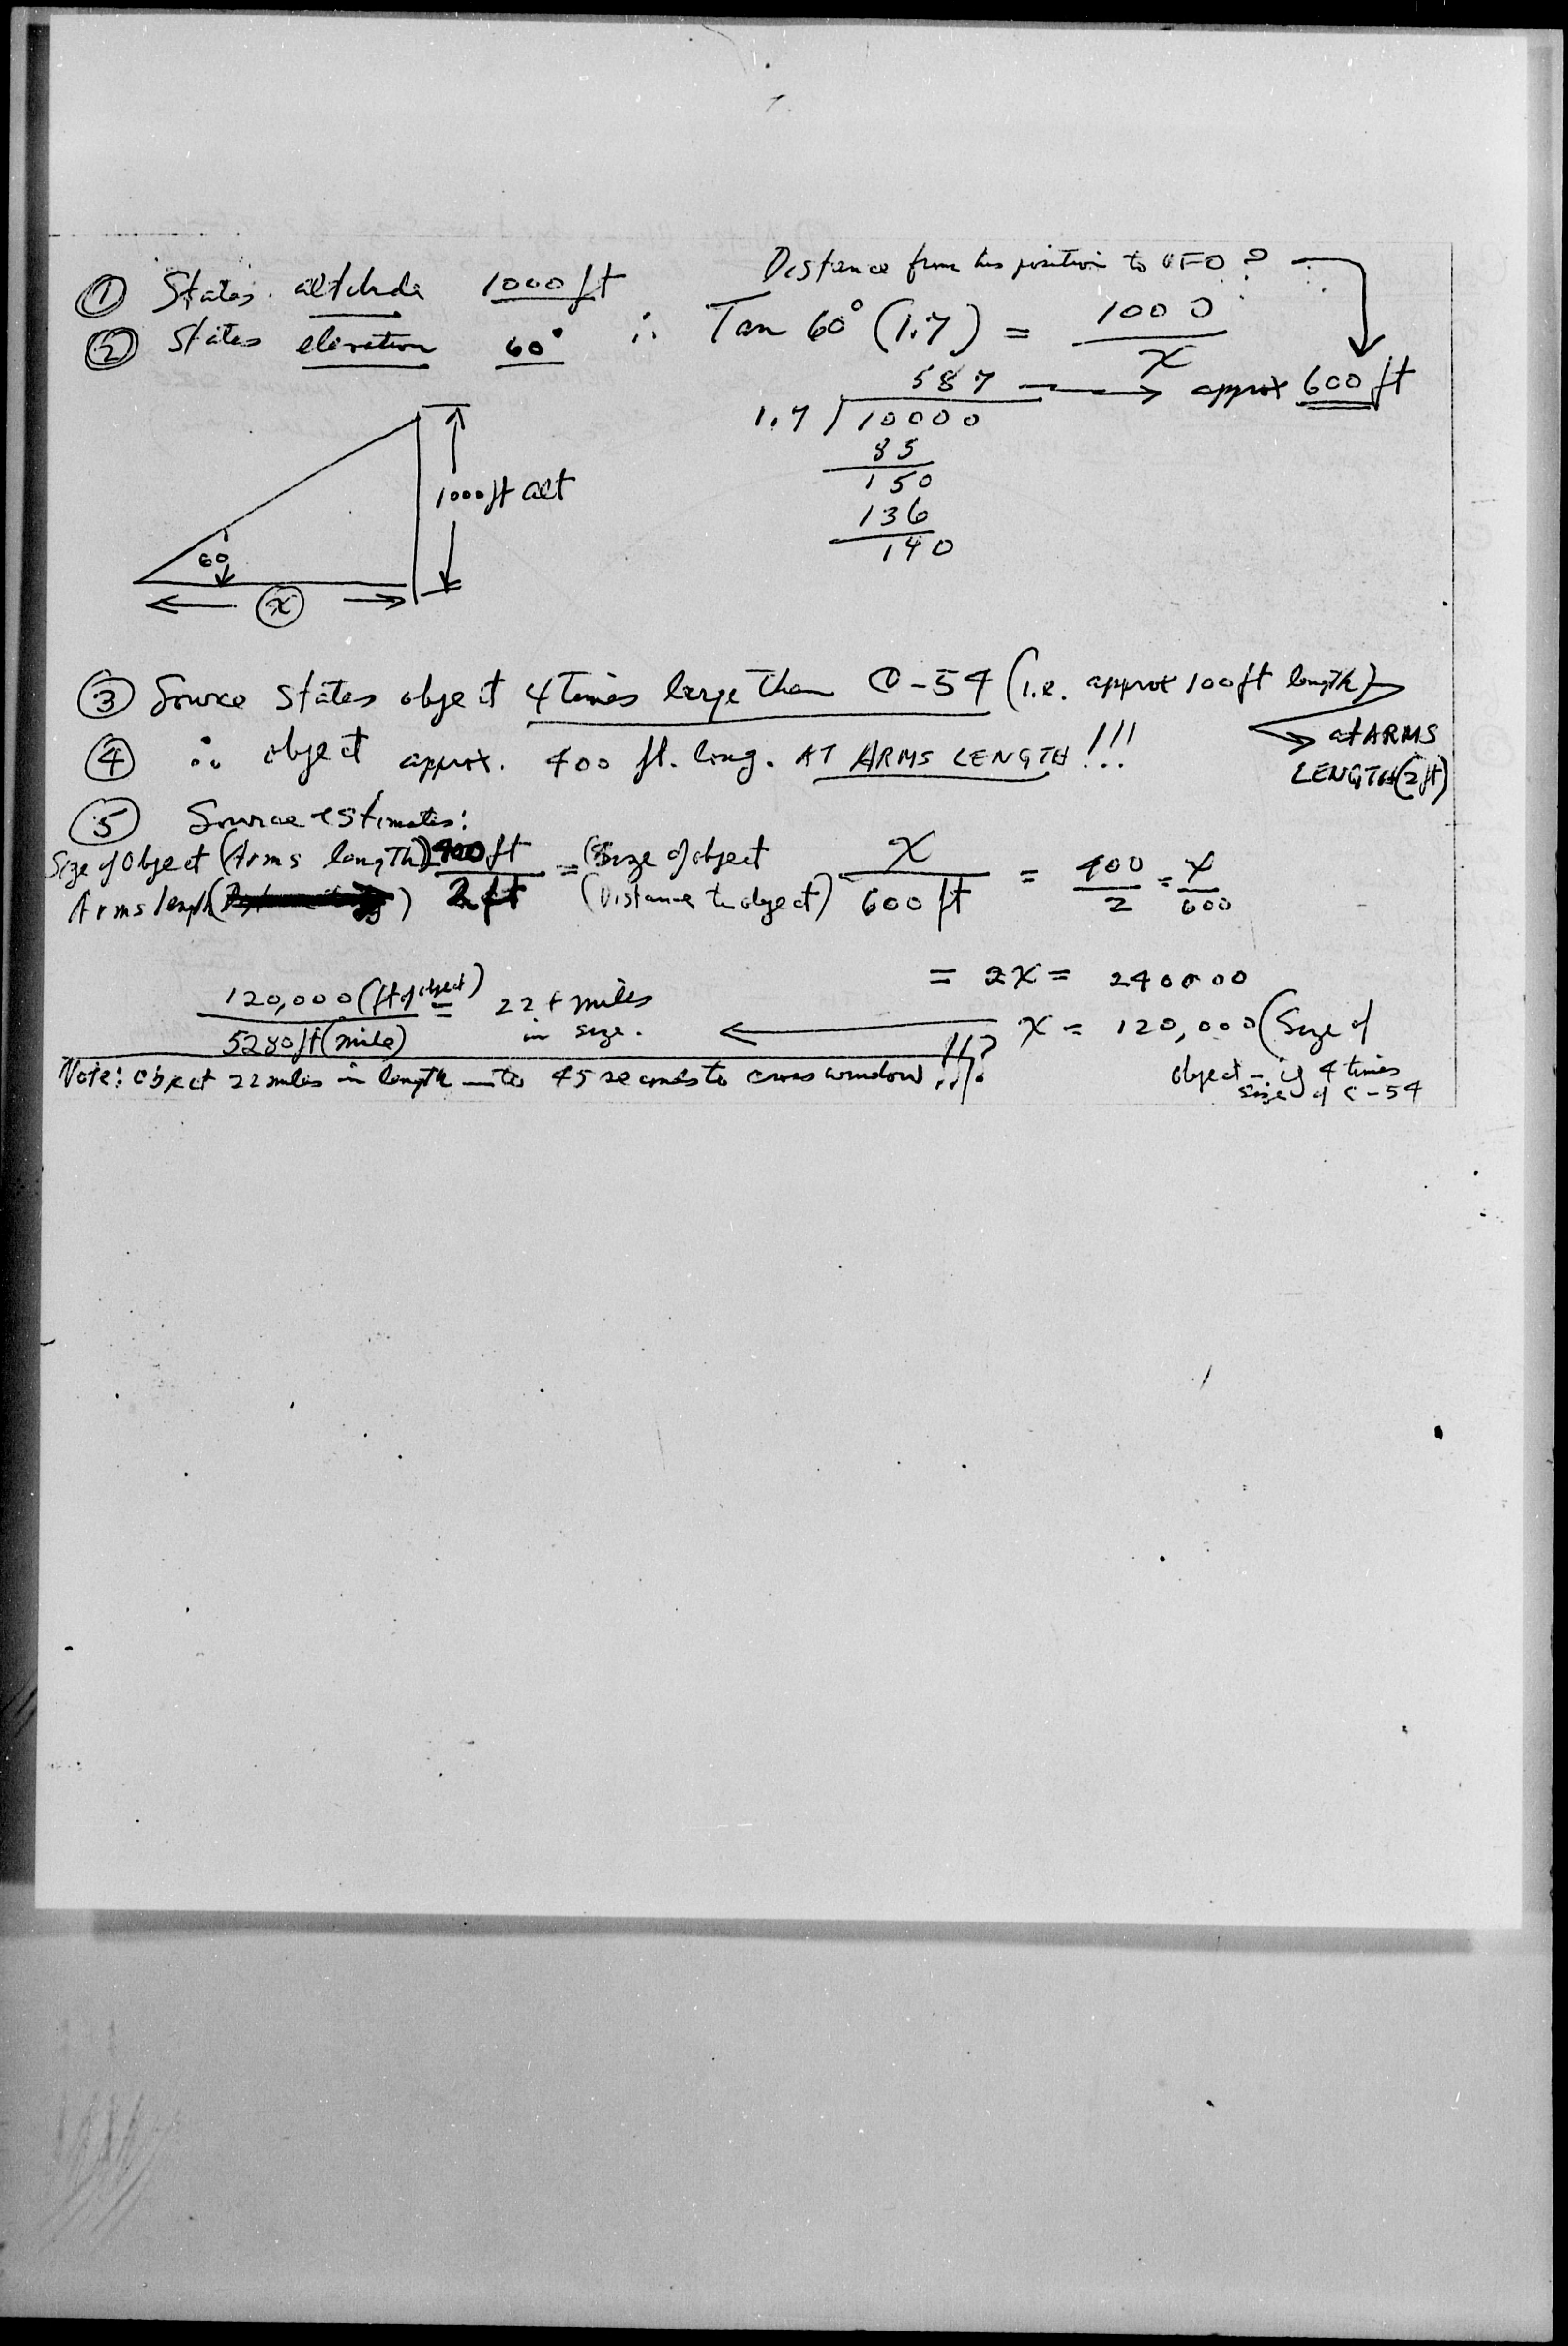 Distance from his position to UFO?
① States altitude 1000 ft
② States elevation 60° ∴ Tan 60° (1.7) = 1000 / x
587 → approx 600 ft
1.7 ) 10000
85
150
136
140
1000 ft alt
60
x
③ Source states object 4 times large than C-54 (i.e. approx 100 ft length)
at ARMS
LENGTH (2 ft)
④ ∴ object approx. 400 ft. long. AT ARMS LENGTH!!!
⑤ Source estimates:
Size of Object (Arms length) 400 ft = (Size of object x = 400 = x
Arms length ( ) 2 ft (Distance to object) 600 ft 2 600
= 2x = 240000
120,000 (ft of object) = 22+ miles
5280 ft (mile) in size.
← x = 120,000 (Size of
object - if 4 times
size of C-54
Note: object 22 miles in length - to 45 seconds to cross window!!?